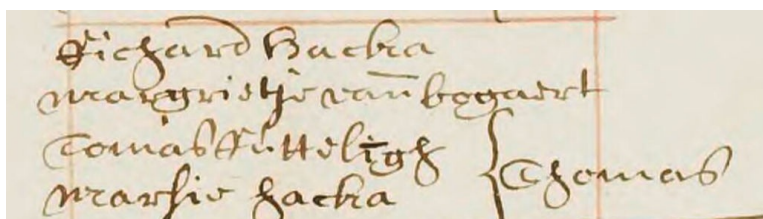 Richard Hacka
margrietje van bogaert
Tomas Sutteligh
marsie hacka
Thomas